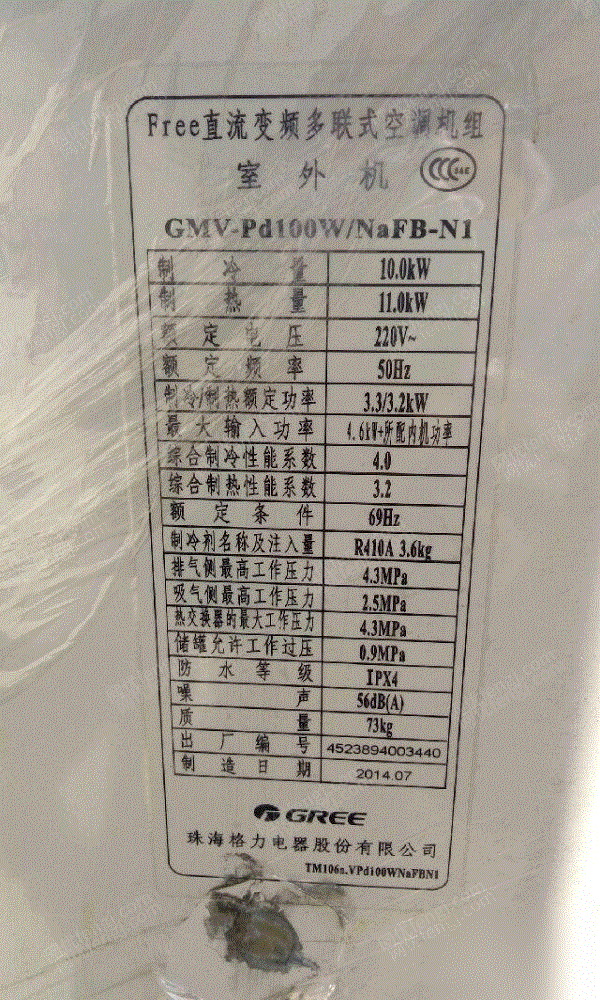 Free直流变频多联式空调机组
室外机
GMV-Pd100W/NaFB-N1
制冷量 10.0kW
制热量 11.0kW
额定电压 220V~
额定频率 50Hz
制冷/制热额定功率 3.3/3.2kW
最大输入功率 4.6kW+所配内机功率
综合制冷性能系数 4.0
综合制热性能系数 3.2
额定条件 69Hz
制冷剂名称及注入量 R410A 3.6kg
排气侧最高工作压力 4.3MPa
吸气侧最高工作压力 2.5MPa
热交换器的最大工作压力 4.3MPa
储罐允许工作过压 0.9MPa
防水等级 IPX4
噪声 56dB(A)
质量 73kg
出厂编号 4523894003440
制造日期 2014.07
GREE
珠海格力电器股份有限公司
TM106s.VPd100WNaFBN1